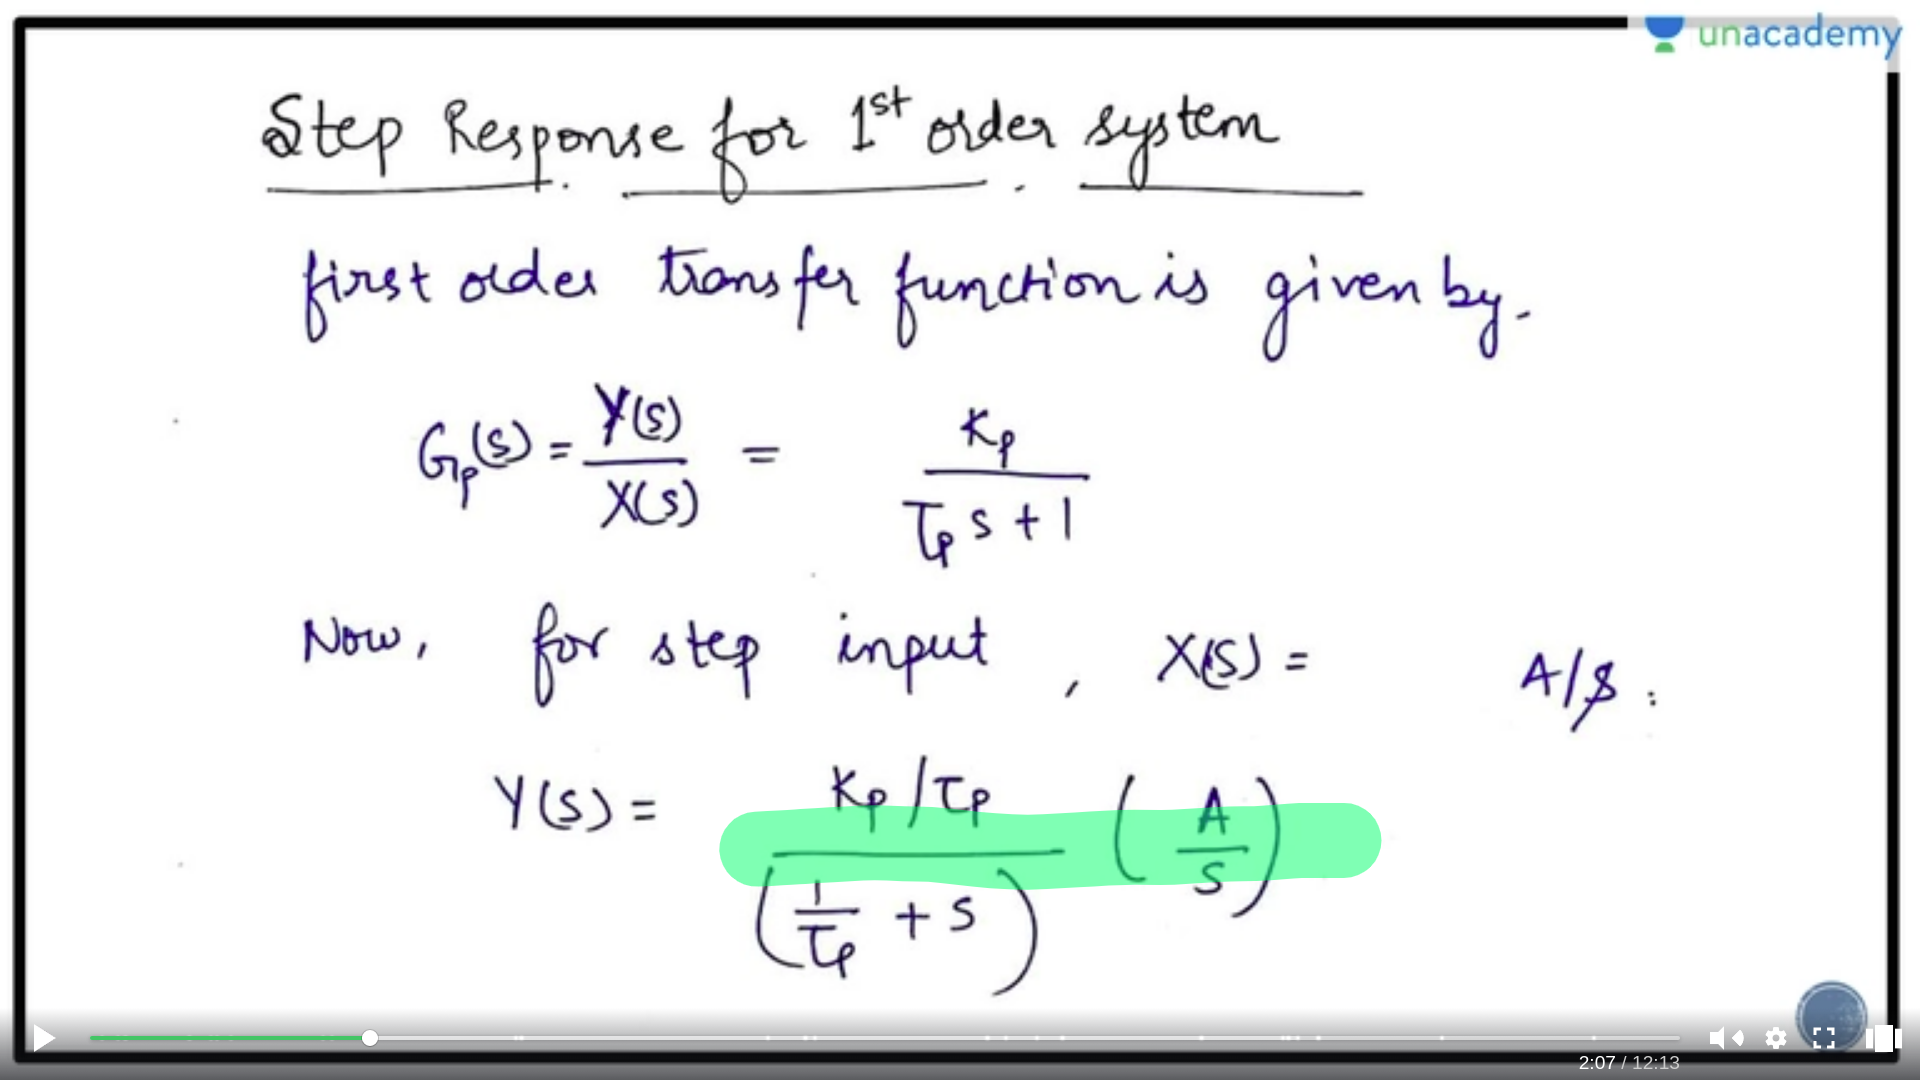 unacademy
Step Response for 1st order system
first order transfer function is given by.
Gp(s) = Y(s)/X(s) = Kp/(τp s + 1)
Now, for step input, X(s) = A/s.
Y(s) = (Kp/τp)/(1/τp + s) (A/s)
2:07 / 12:13